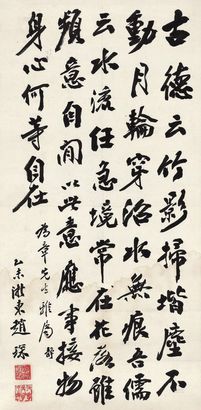 古德云竹影掃堦塵不
動月輪穿沼水無痕吾儒
云水流任急境常在花落雖
頻意自閒以此意應事接物
身心何等自在
先生雅屬
乙未浙東趙琛